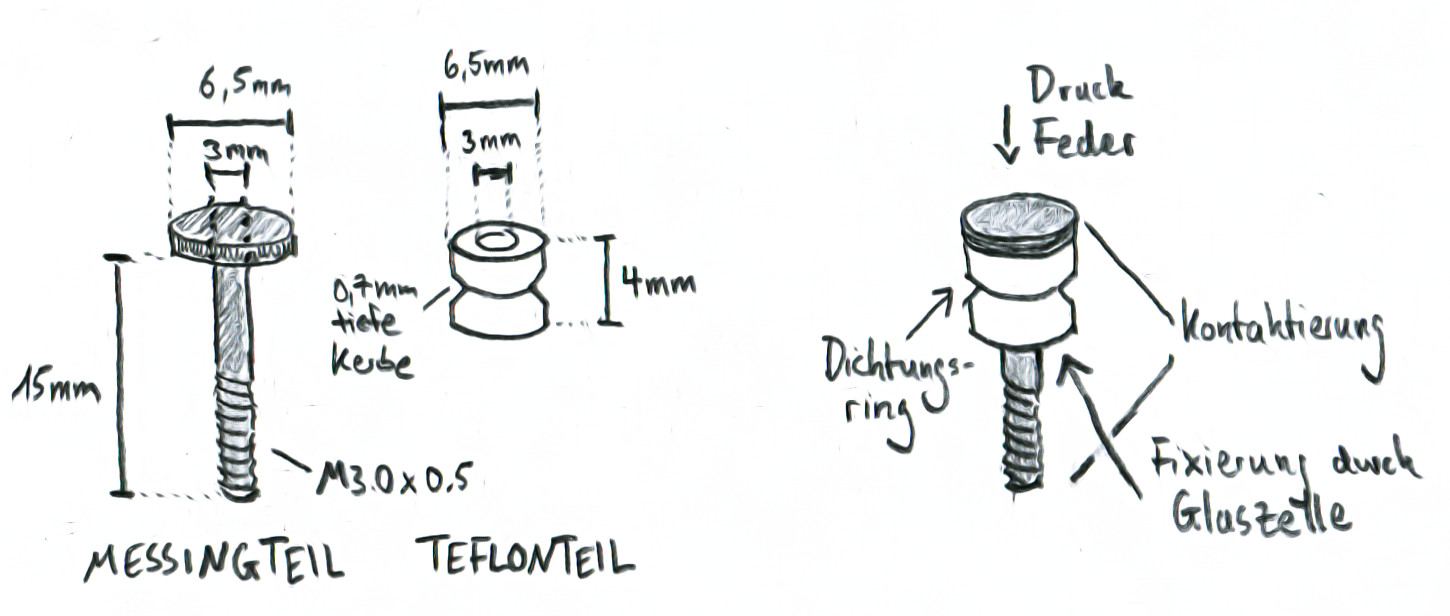 6,5mm
3mm
15mm
M3.0 x 0.5
MESSINGTEIL
6,5mm
3mm
0,7mm
tiefe
Kerbe
4mm
TEFLONTEIL
Druck
Feder
Dichtungs-
ring
Kontaktierung
Fixierung durch
Glaszelle